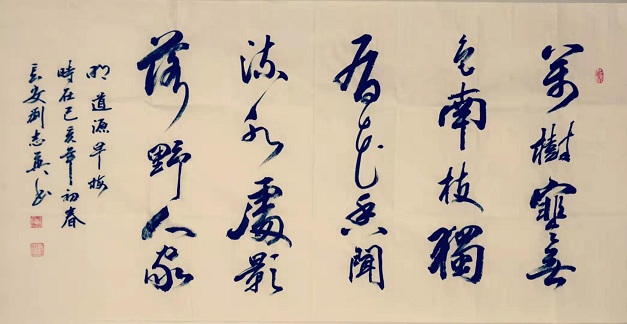 萬樹寒無
色南枝獨
有花香聞
流水處影
落野人家
明道源早梅
時在己亥年初春
安劉志英書